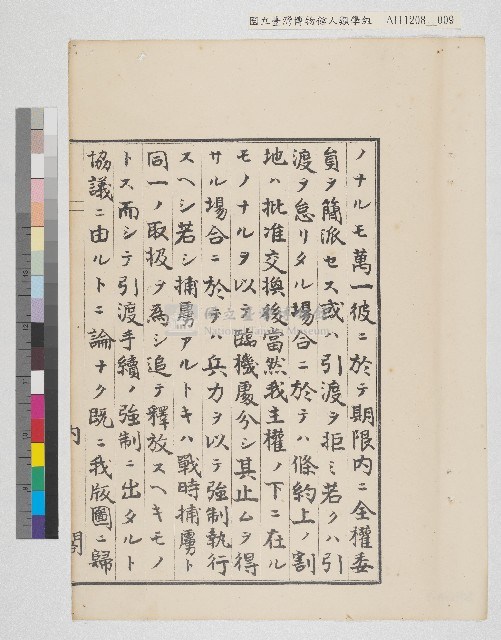 國立臺灣博物館人類學組 AH1208__009
ノナルモ萬一彼ニ於テ期限内ニ全權委
員ヲ簡派セス或ハ引渡ヲ拒ミ若クハ引
渡ヲ怠リタル場合ニ於テハ條約上ノ割
地ハ批准交換後當然我主權ノ下ニ在ル
モノナルヲ以テ臨機處分シ其止ムヲ得
サル場合ニ於テハ兵力ヲ以テ強制執行
スヘシ若シ捕虜アルトキハ戰時捕虜ト
同一ノ取扱ヲ為シ追テ釋放スヘキモノ
トス而シテ引渡手續ノ強制ニ出タルト
協議ニ由ルトニ論ナク既ニ我版圖ニ歸
二
内閣
國立臺灣博物館
National Taiwan Museum